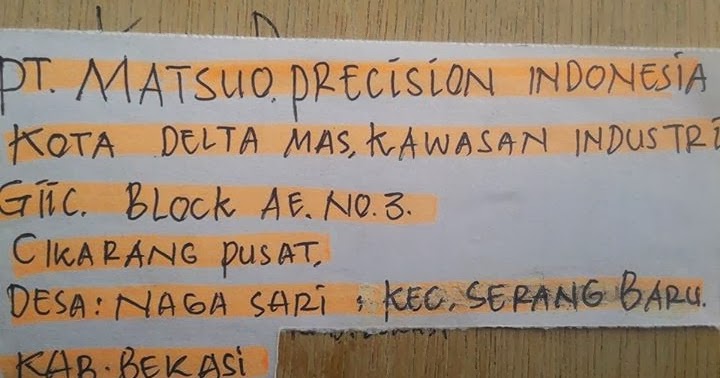 PT. MATSUO. PRECISION INDONESIA
KOTA DELTA MAS, KAWASAN INDUSTRI
GIIC. BLOCK AE. NO. 3.
CIKARANG PUSAT,
DESA: NAGA SARI ; KEC. SERANG BARU.
KAB. BEKASI